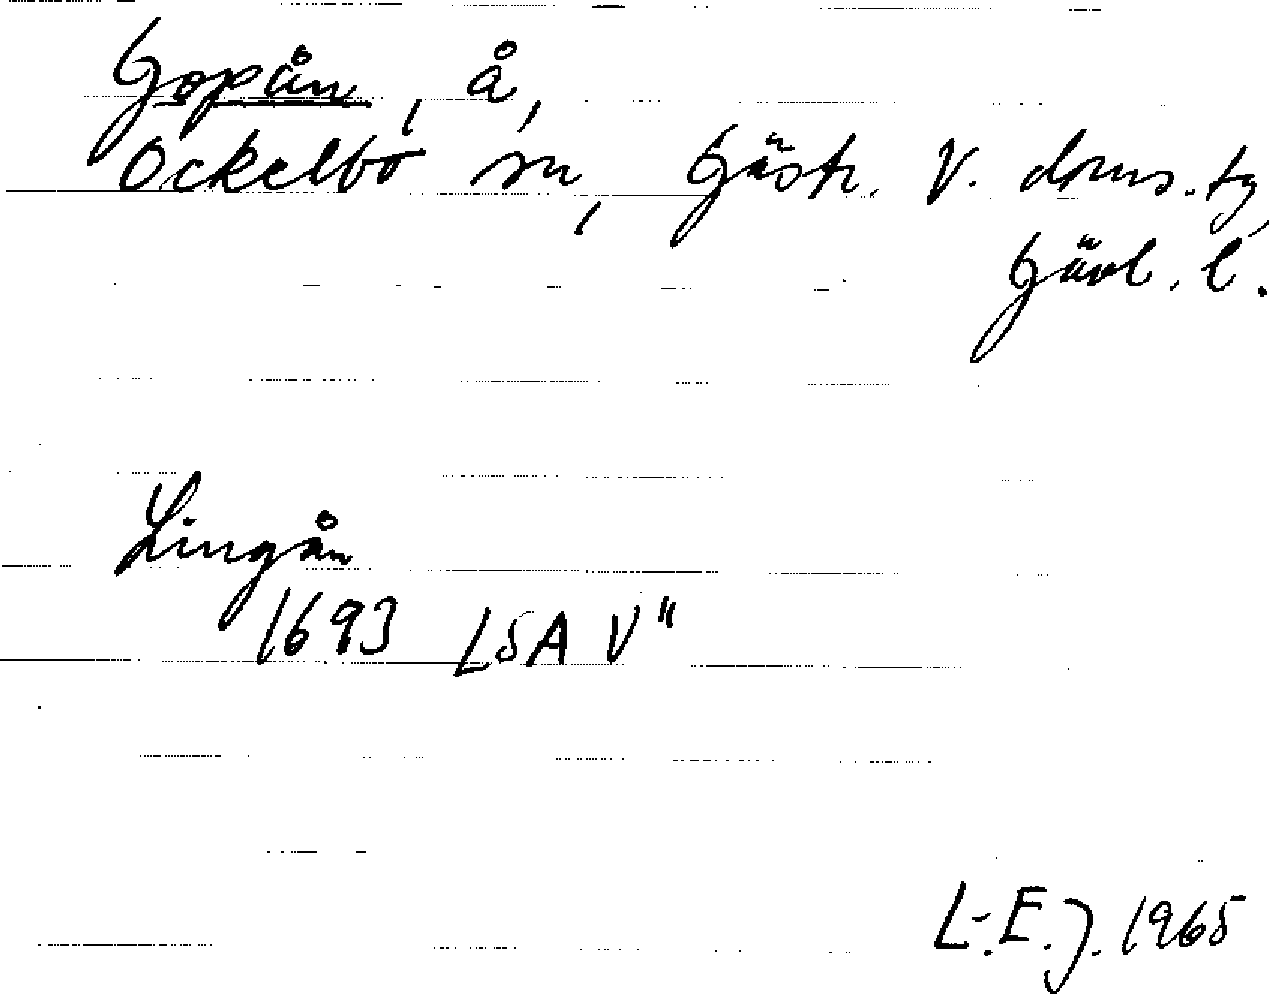 Gopån, å,
Ockelbo sn, Gästr. V. doms.tg,
Gävl. l.
Lingån
1693 LSA V"
L.E.J. 1965